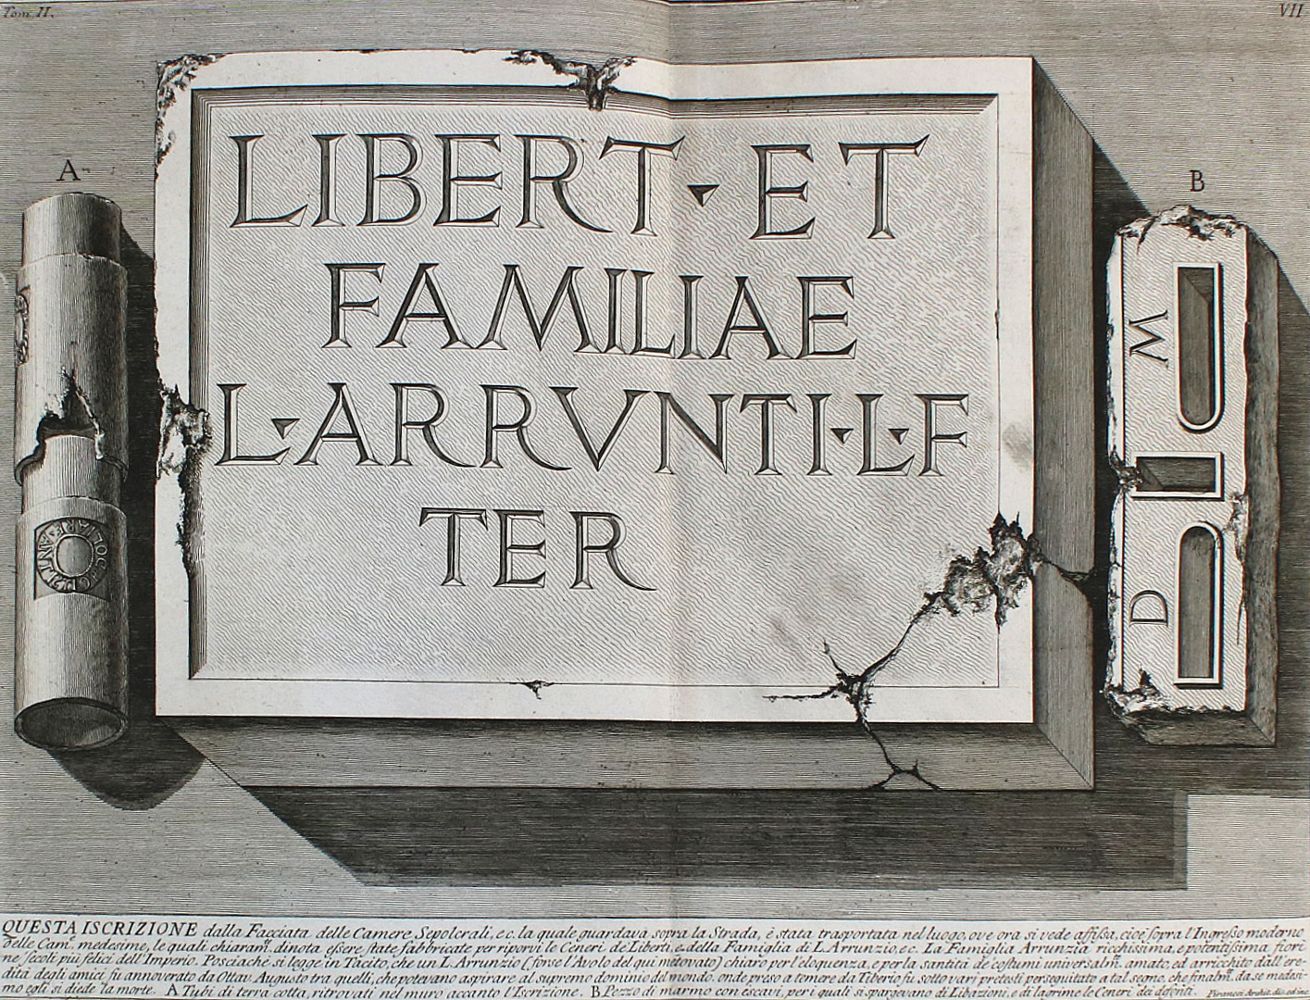 Tom. II.
VII
A
B
LIBERT · ET
FAMILIAE
L · ARRVNTI · L · F
TER
M
D
QUESTA ISCRIZIONE dalla Facciata delle Camere Sepolcrali, e.c. la quale guardava sopra la Strada, è stata trasportata nel luogo, ov'e ora si vede affissa, cioè sopra l'Ingresso moderno
delle Cam.e medesime, le quali chiaram.te dinota essere state fabbricate per riporvi le Ceneri de' Liberti, e della Famiglia di L. Arrunzio, e.c. La Famiglia Arrunzia ricchissima, e potentissima fiorì
ne' secoli più felici dell'Imperio. Posciachè si legge in Tacito, che un L. Arrunzio (forse l'Avolo del qui mentovato) chiaro per l'eloquenza, e per la santità de' costumi universalm.te amato, ed arricchito dall'ere-
dità degli amici, fu annoverato da Ottav. Augusto tra quelli, che potevano aspirare al supremo dominio del mondo. onde preso a temere da Tiberio fu sotto vari pretesti perseguitato a tal segno, che finalm.te da se medesi-
mo egli si diede la morte. A Tubi di terra cotta, ritrovati nel muro accanto l'Iscrizione. B. Pezzo di marmo con escavi, per i quali si spargevano di Libazioni, e di lagrime le Ceneri dei defonti. Piranesi Archit. dis. ed inc.